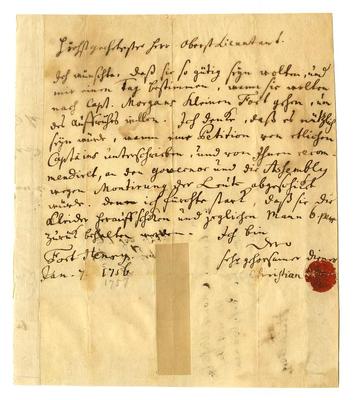 Hochgeehrtester Herr Obrist Lieutenant.
Ich wünschte, daß sie so gütig seyn wolten, und
mir einen Tag bestimmen, wenn sie wolten
nach Capt. Morgans kleinen Fort gehen, um
des willen. Ich denke, daß es nützlich
seyn würde, wenn eine Petition von etlichen
Captains unterschrieben, und von ihnen recom
mendirt, an den gouvenor und die Assembly
wegen Montirung der Leute abgeschickt
würde. denn ich fürchte starck, daß sie die
Kleider herauff schicken und jeglichen Mann 6
zurück behalten werden.
Ich bin
Dero
Fort Henry.
sehr gehorsamer diener
Jan. 7. 1756
Christian
1756